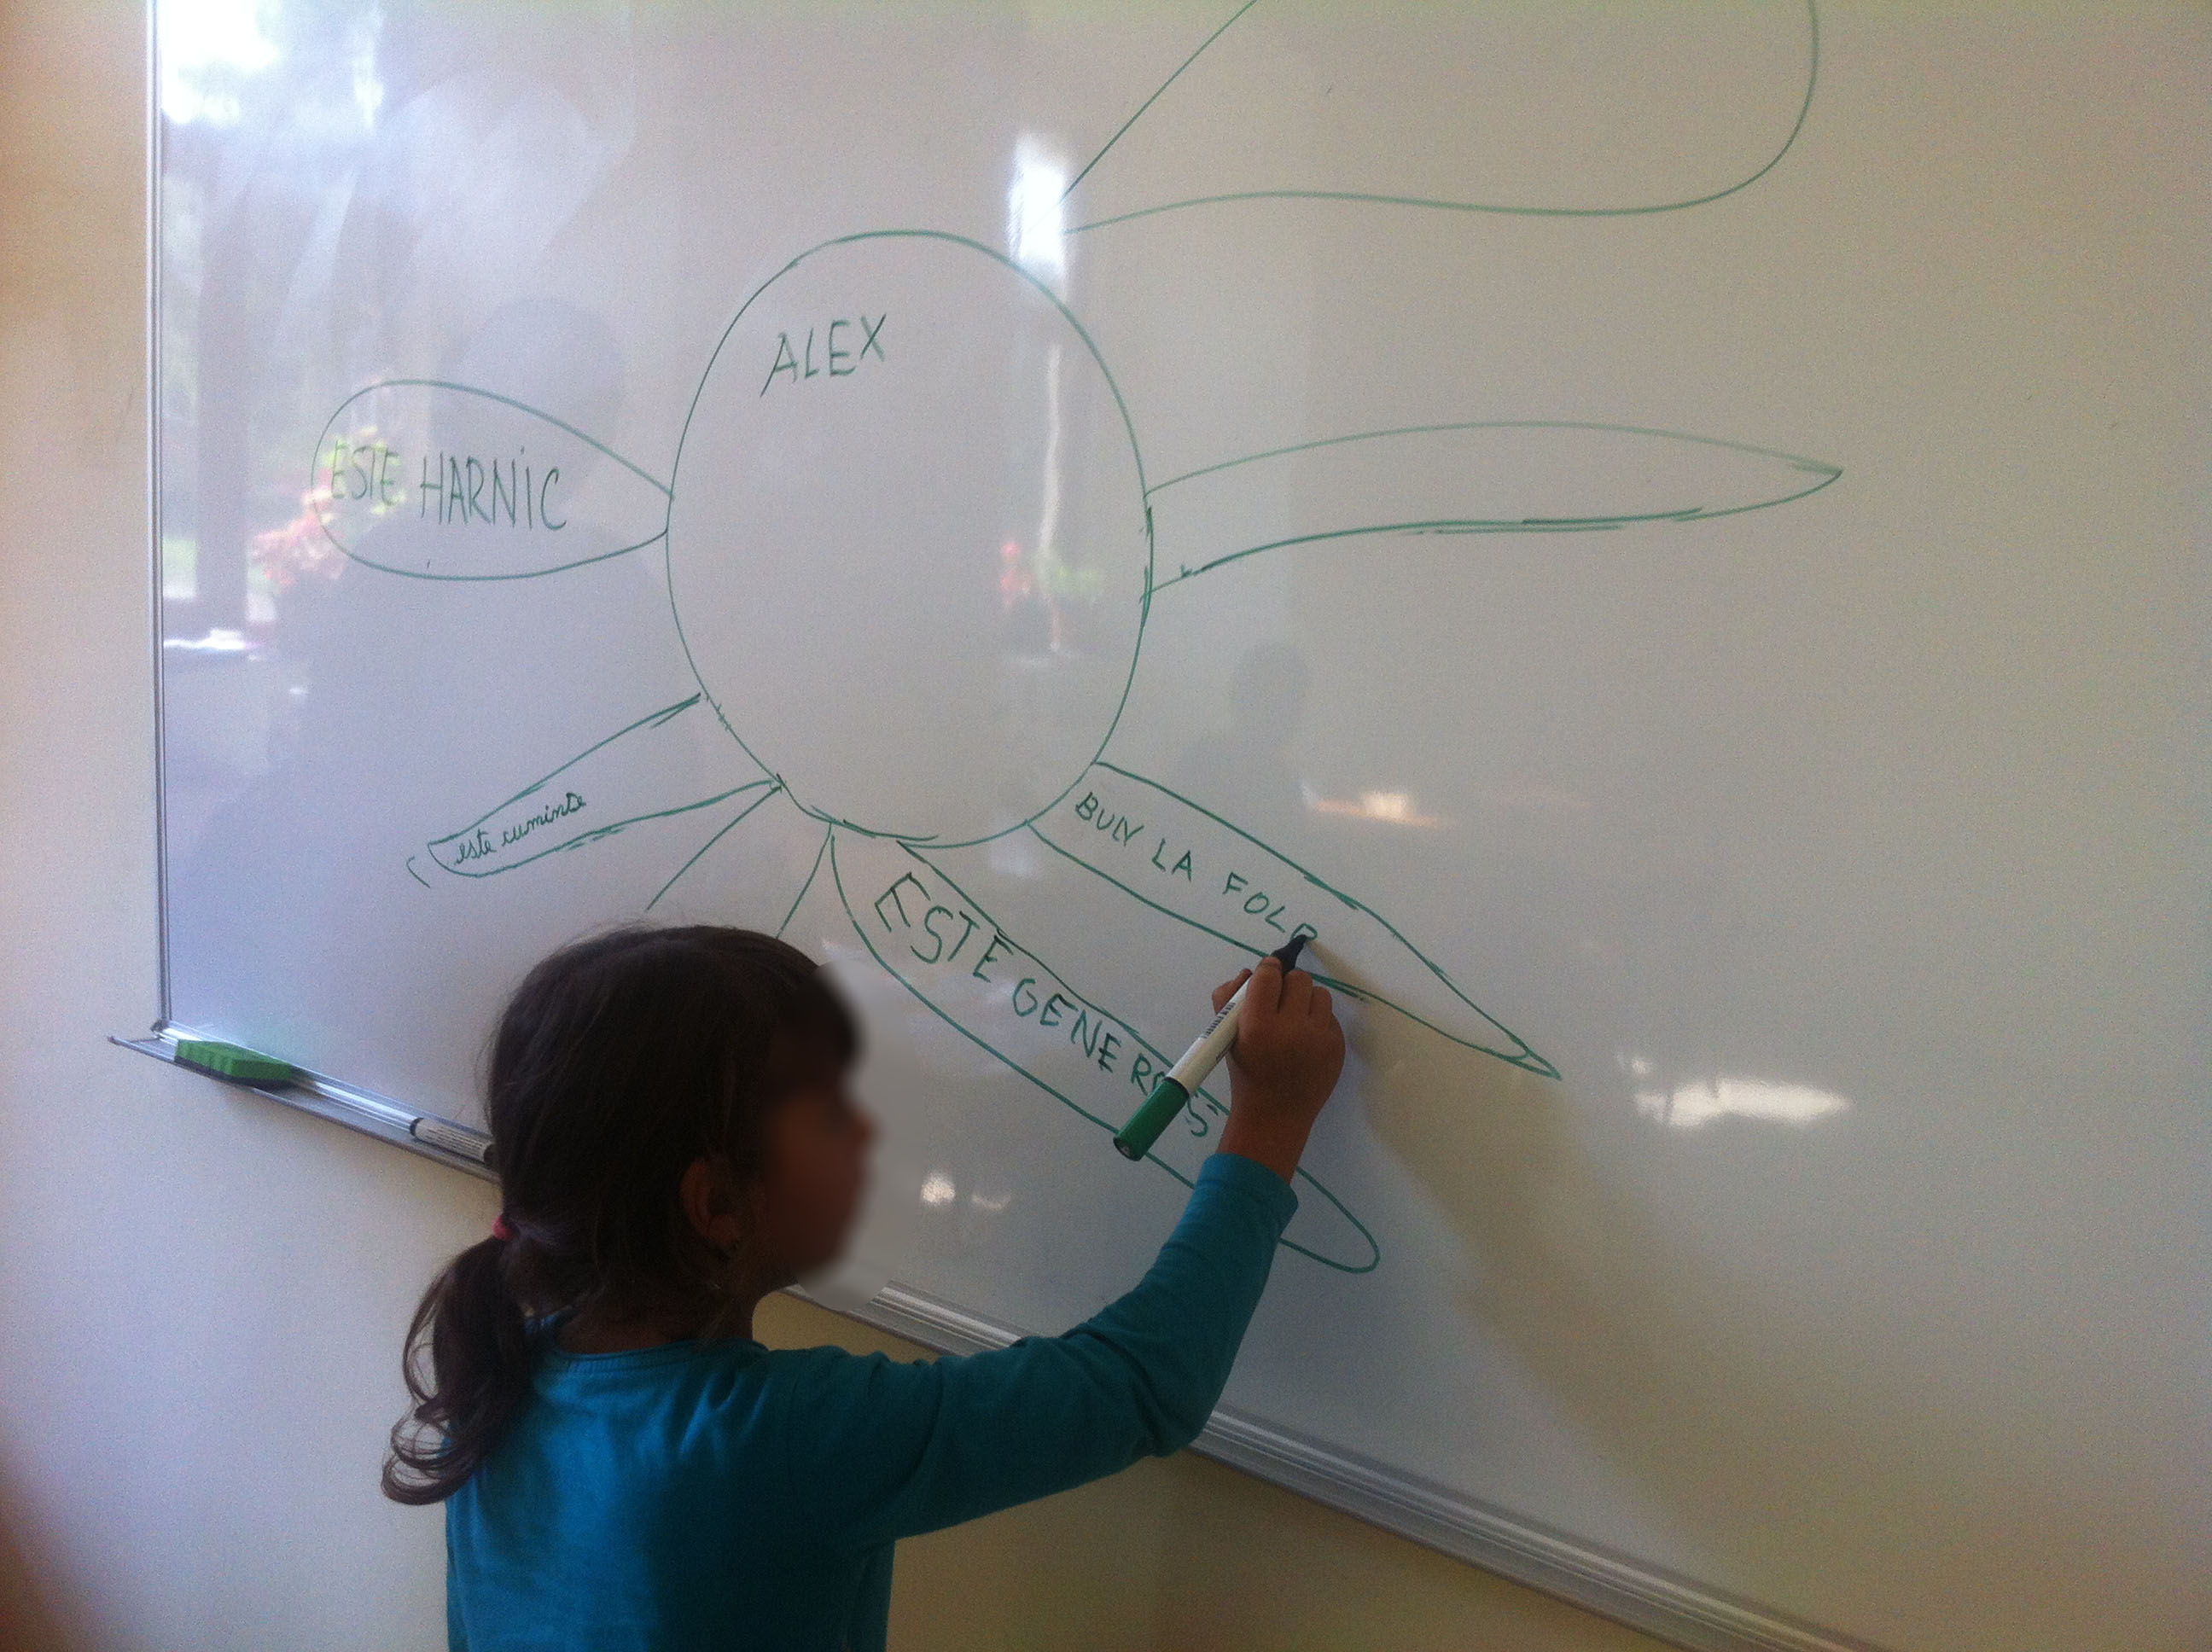 ALEX
ESTE HARNIC
este cuminte
ESTE GENEROS
BUN LA FOLB